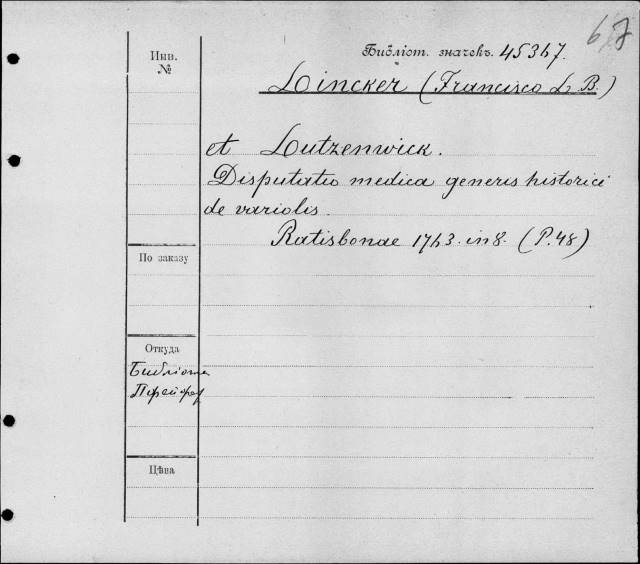 67
Инв. №
Библіот. значекъ. 45367.
Lincker (Francisco L. B.)
et Lutzenwick.
Disputatio medica generis historici
de variolis.
Ratisbonae 1763. in 8. (P. 48)
По заказу
Откуда
Библіот
Пфейфер
Цѣна